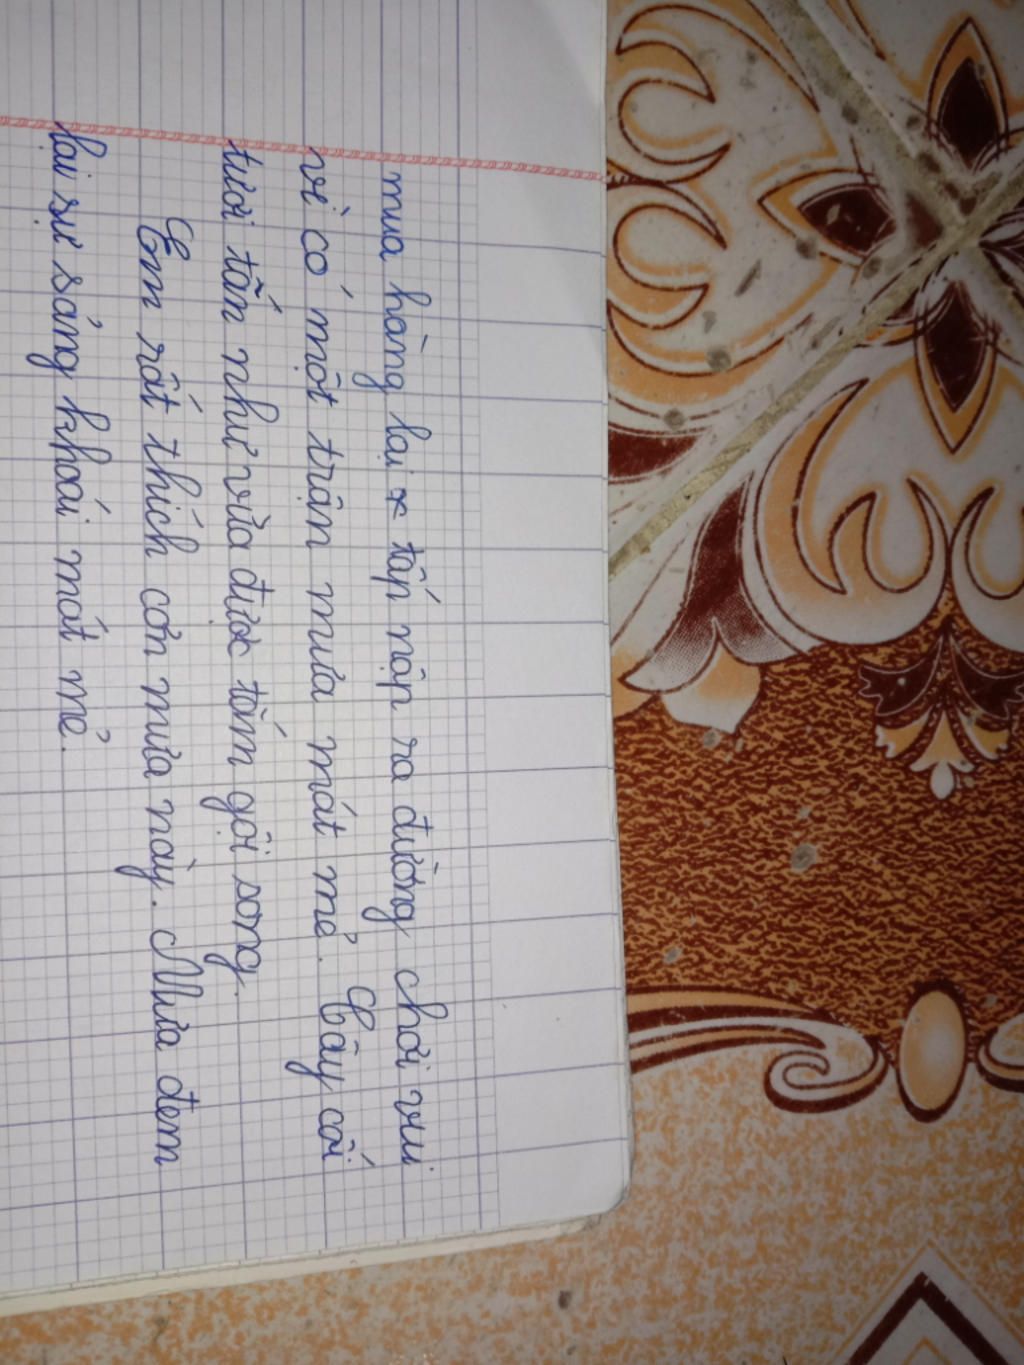 mua hàng lại x tấp nập ra đường chơi vui
vì có một trận mưa mát mẻ. Cây cối
tười tắn như vừa được tắm gội song.
Em rất thích cơn mưa này. Mưa đem
lại sự sảng khoái mát mẻ.